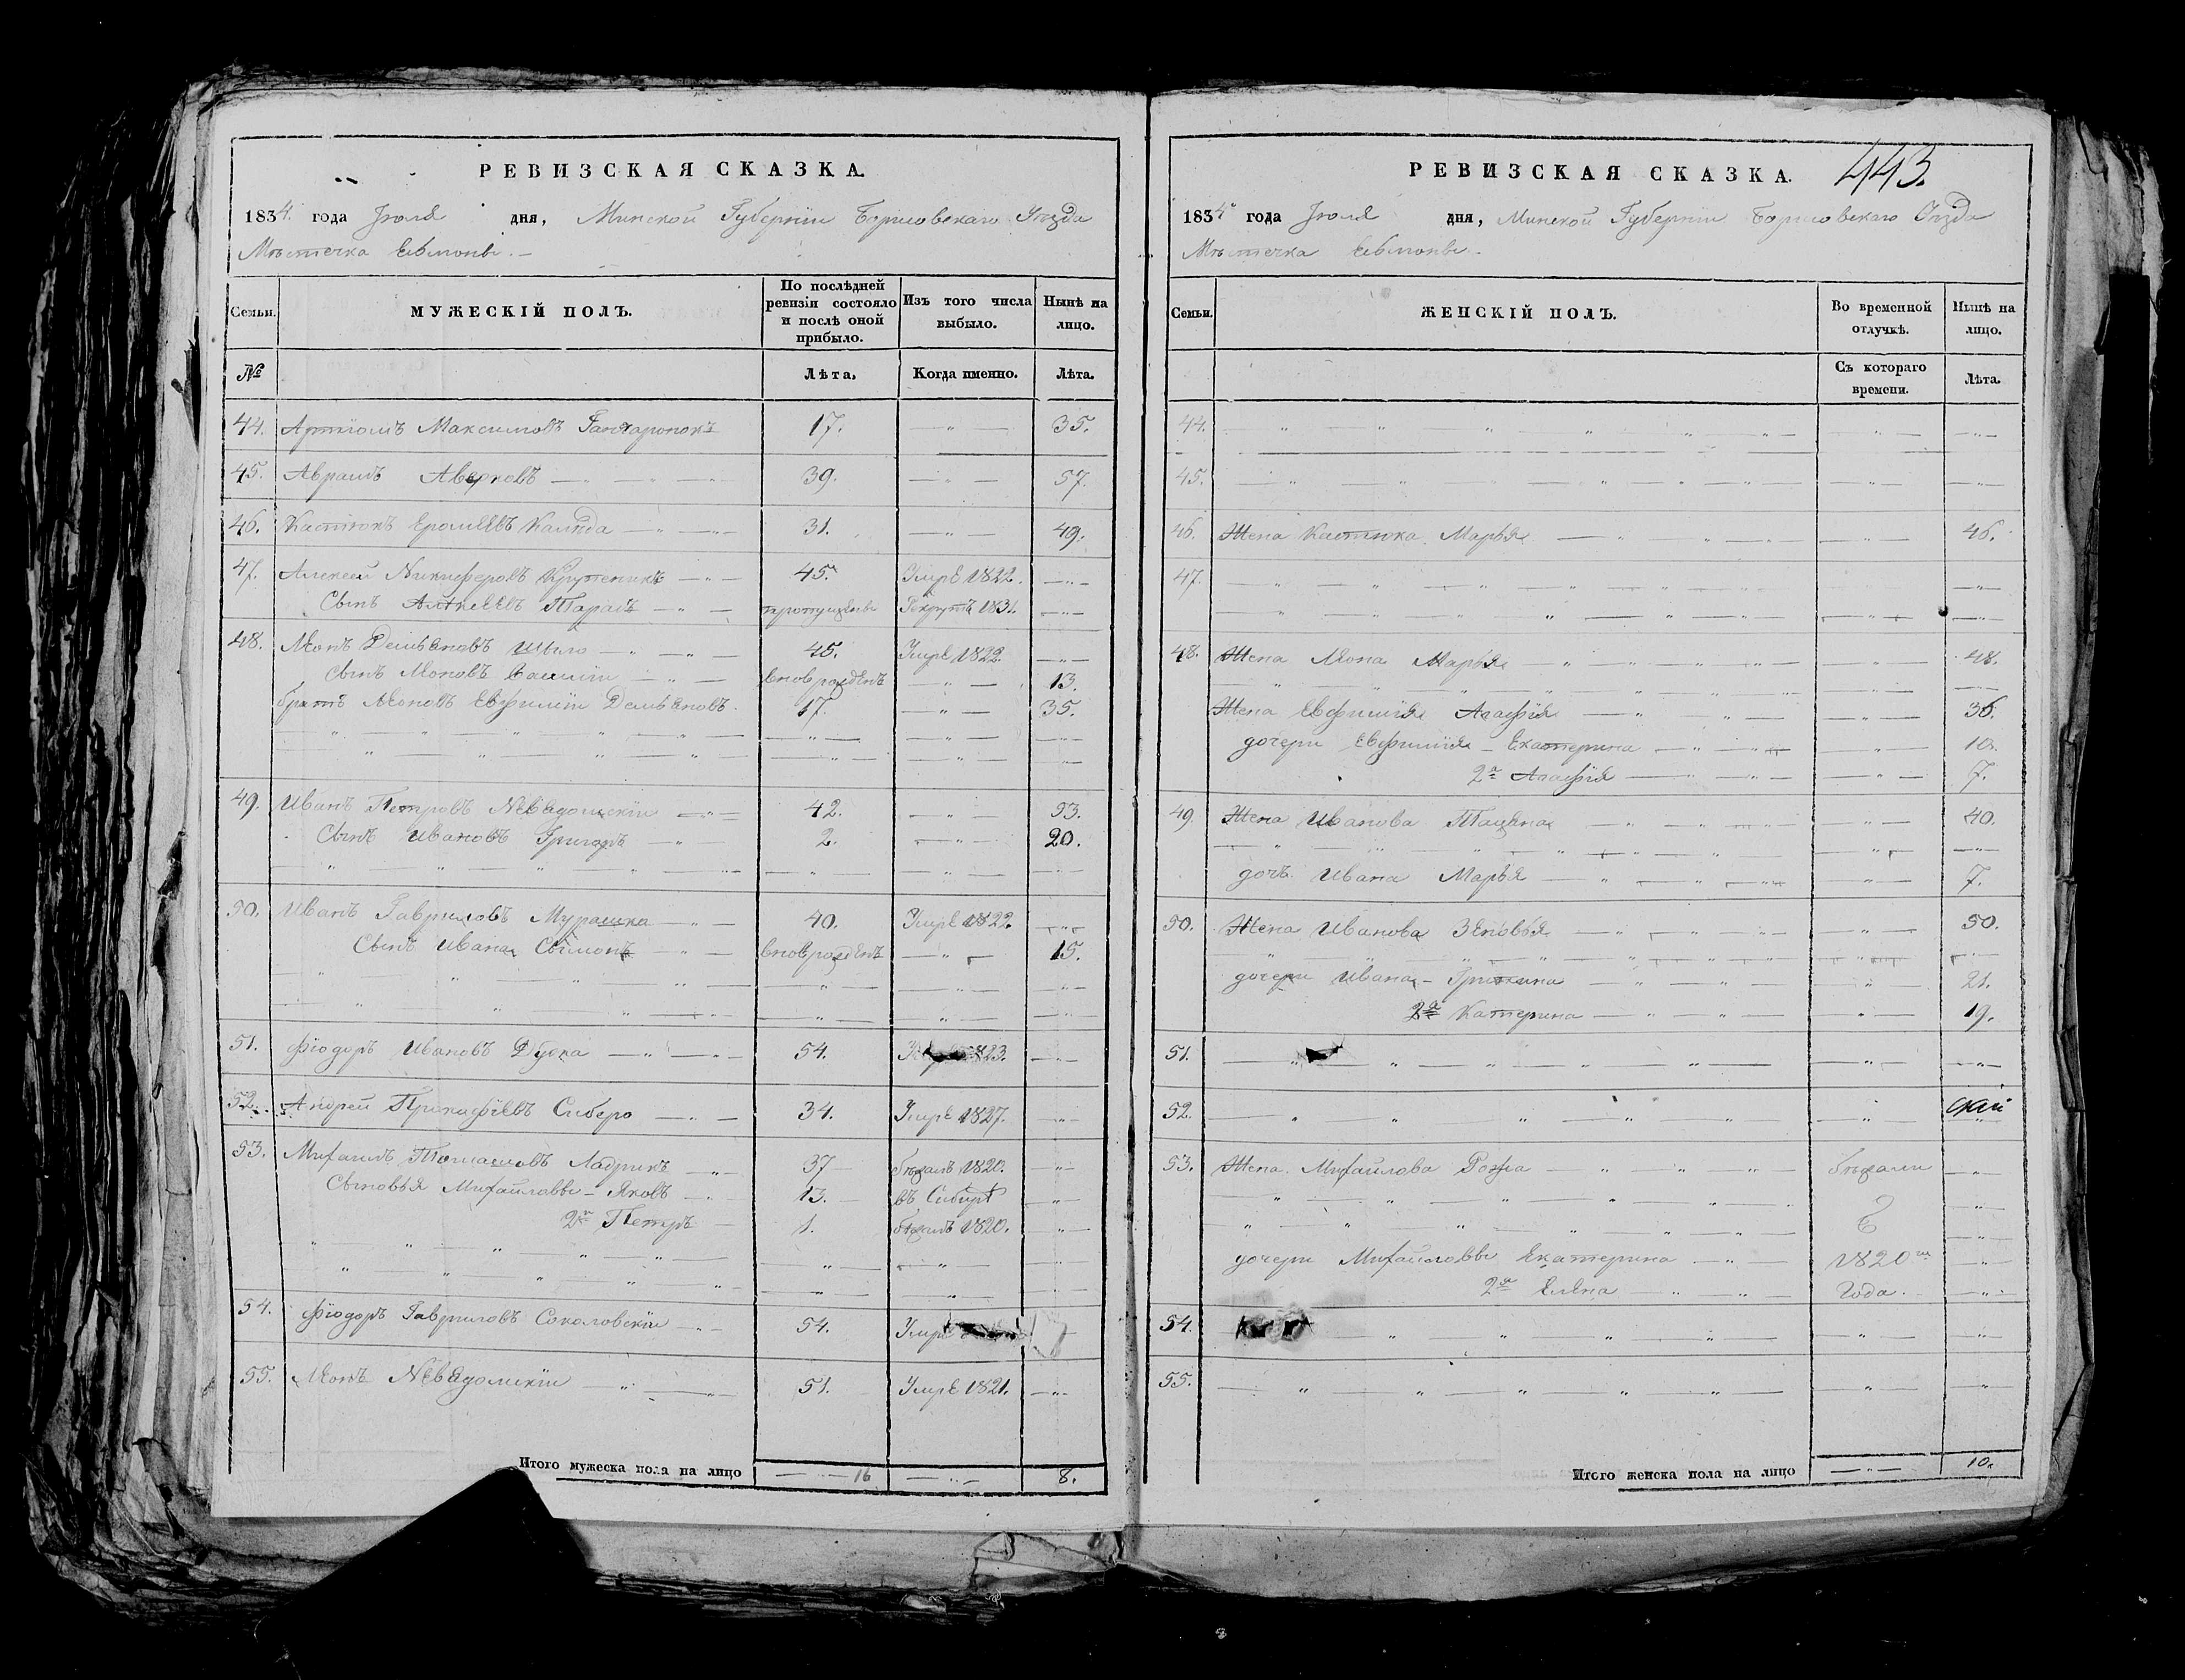 РЕВИЗСКАЯ СКАЗКА.
1834. года Іюля дня, Минской Губерніи Борисовскаго Уѣзда
Мѣстечка
Семьи.
МУЖЕСКІЙ ПОЛЪ.
По послѣдней ревизіи состояло и послѣ оной прибыло.
Изъ того числа выбыло.
Нынѣ на лицо.
№ Лѣта. Когда именно. Лѣта.
44. Артіомъ Максимовъ 17. — „ — 35.
45. Аврамъ 39. — „ — 57.
46. Кастюкъ 31. — „ — 49.
47. Алексей Никиферовъ 45. Умре 1822. — „ —
Сынъ Тарасъ Рекрутъ 1831. — „ —
48. Леонъ Демьяновъ Шило 45. Умре 1822. — „ —
Сынъ Леоновъ вноврожденъ — „ — 13.
братъ Леоновъ Евфимій Демьяновъ. 17. — „ — 35.
49. Иванъ Петровъ Неведомскій 42. — „ —
Сынъ Ивановъ Григоръ 2. — „ — 20.
50. Иванъ Гавриловъ Мурашка 40. Умре 1822. — „ —
Сынъ Ивана Сымонъ вноврожденъ — „ — 15.
51. Фіодоръ Ивановъ 54. — „ —
52. Андрей 34. Умре 1827. — „ —
53. Михаилъ Томашовъ Ладрикъ 37 бѣжалъ 1820. — „ —
Сыновья Михайловы – Яковъ 13. въ Сибирь — „ —
2й Петръ 1. бѣжалъ 1820. — „ —
54. Фіодоръ Гавриловъ Соколовскій 54. Умре
55. Леонъ Неведомскій 51. Умре 1821. — „ —
Итого мужеска пола на лицо 16 — „ — 8.
РЕВИЗСКАЯ СКАЗКА. 443.
1834 года Іюля дня, Минской Губерніи Борисовскаго Уѣзда
Мѣстечка
Семьи.
ЖЕНСКІЙ ПОЛЪ.
Во временной отлучкѣ.
Нынѣ на лицо.
Съ котораго времени.
Лѣта.
44.
45.
46. Жена Кастюка Марья — „ — 46.
47.
48. Жена Леона Марья — „ — 48.
Жена Евфимія Агафія — „ — 36.
дочери Евфимія – Екатерина — „ — 10.
2я Агафія — „ — 7.
49. Жена Иванова Тацяна — „ — 40.
дочь Ивана Марья — „ — 7.
50. Жена Иванова Зеновья — „ — 50.
дочери Ивана – — „ — 21.
2я Катерина — „ — 19.
51.
52.
53. Жена Михайлова бѣжали — „ —
дочери Михайловы Екатерина 1820го — „ —
2я Елена Года. — „ —
54.
55.
Итого женска пола на лицо — „ — 10.